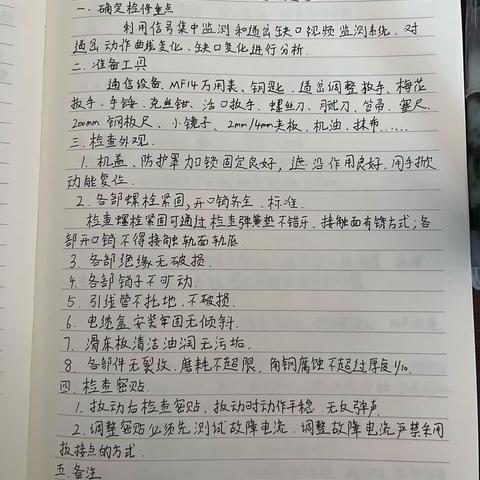 一、确定检修重点
利用信号集中监测和道岔缺口视频监测系统,对
道岔动作曲线变化、缺口变化进行分析.
二、准备工具
通信设备、MF14万用表、钥匙、道岔调整扳手、梅花
扳手、手锤、克丝钳、活口扳手、螺丝刀、套筒、塞尺、
200mm钢板尺、小镜子、2mm/4mm夹板、机油、抹布......
三、检查外观.
1. 机盖、防护罩加锁固定良好,遮沿作用良好,用手掀
动能复位.
2. 各部螺栓紧固,开口销齐全、标准.
检查螺栓紧固可通过检查弹簧垫不错牙、接触面有锈方式;各
部开口销不得接触轨面轨底.
3. 各部绝缘无破损.
4. 各部销子不可动.
5. 引线管不托地、不破损.
6. 电缆盒安装牢固无倾斜.
7. 滑床板清洁油润无污垢.
8. 各部件无裂纹、磨耗不超限,角钢腐蚀不超过厚度1/10.
四、检查密贴.
1. 扳动后检查密贴,扳动时动作平稳、无反弹声.
2. 调整密贴必须先测试故障电流,调整故障电流严禁采用
扳接点的方式.
五、备注